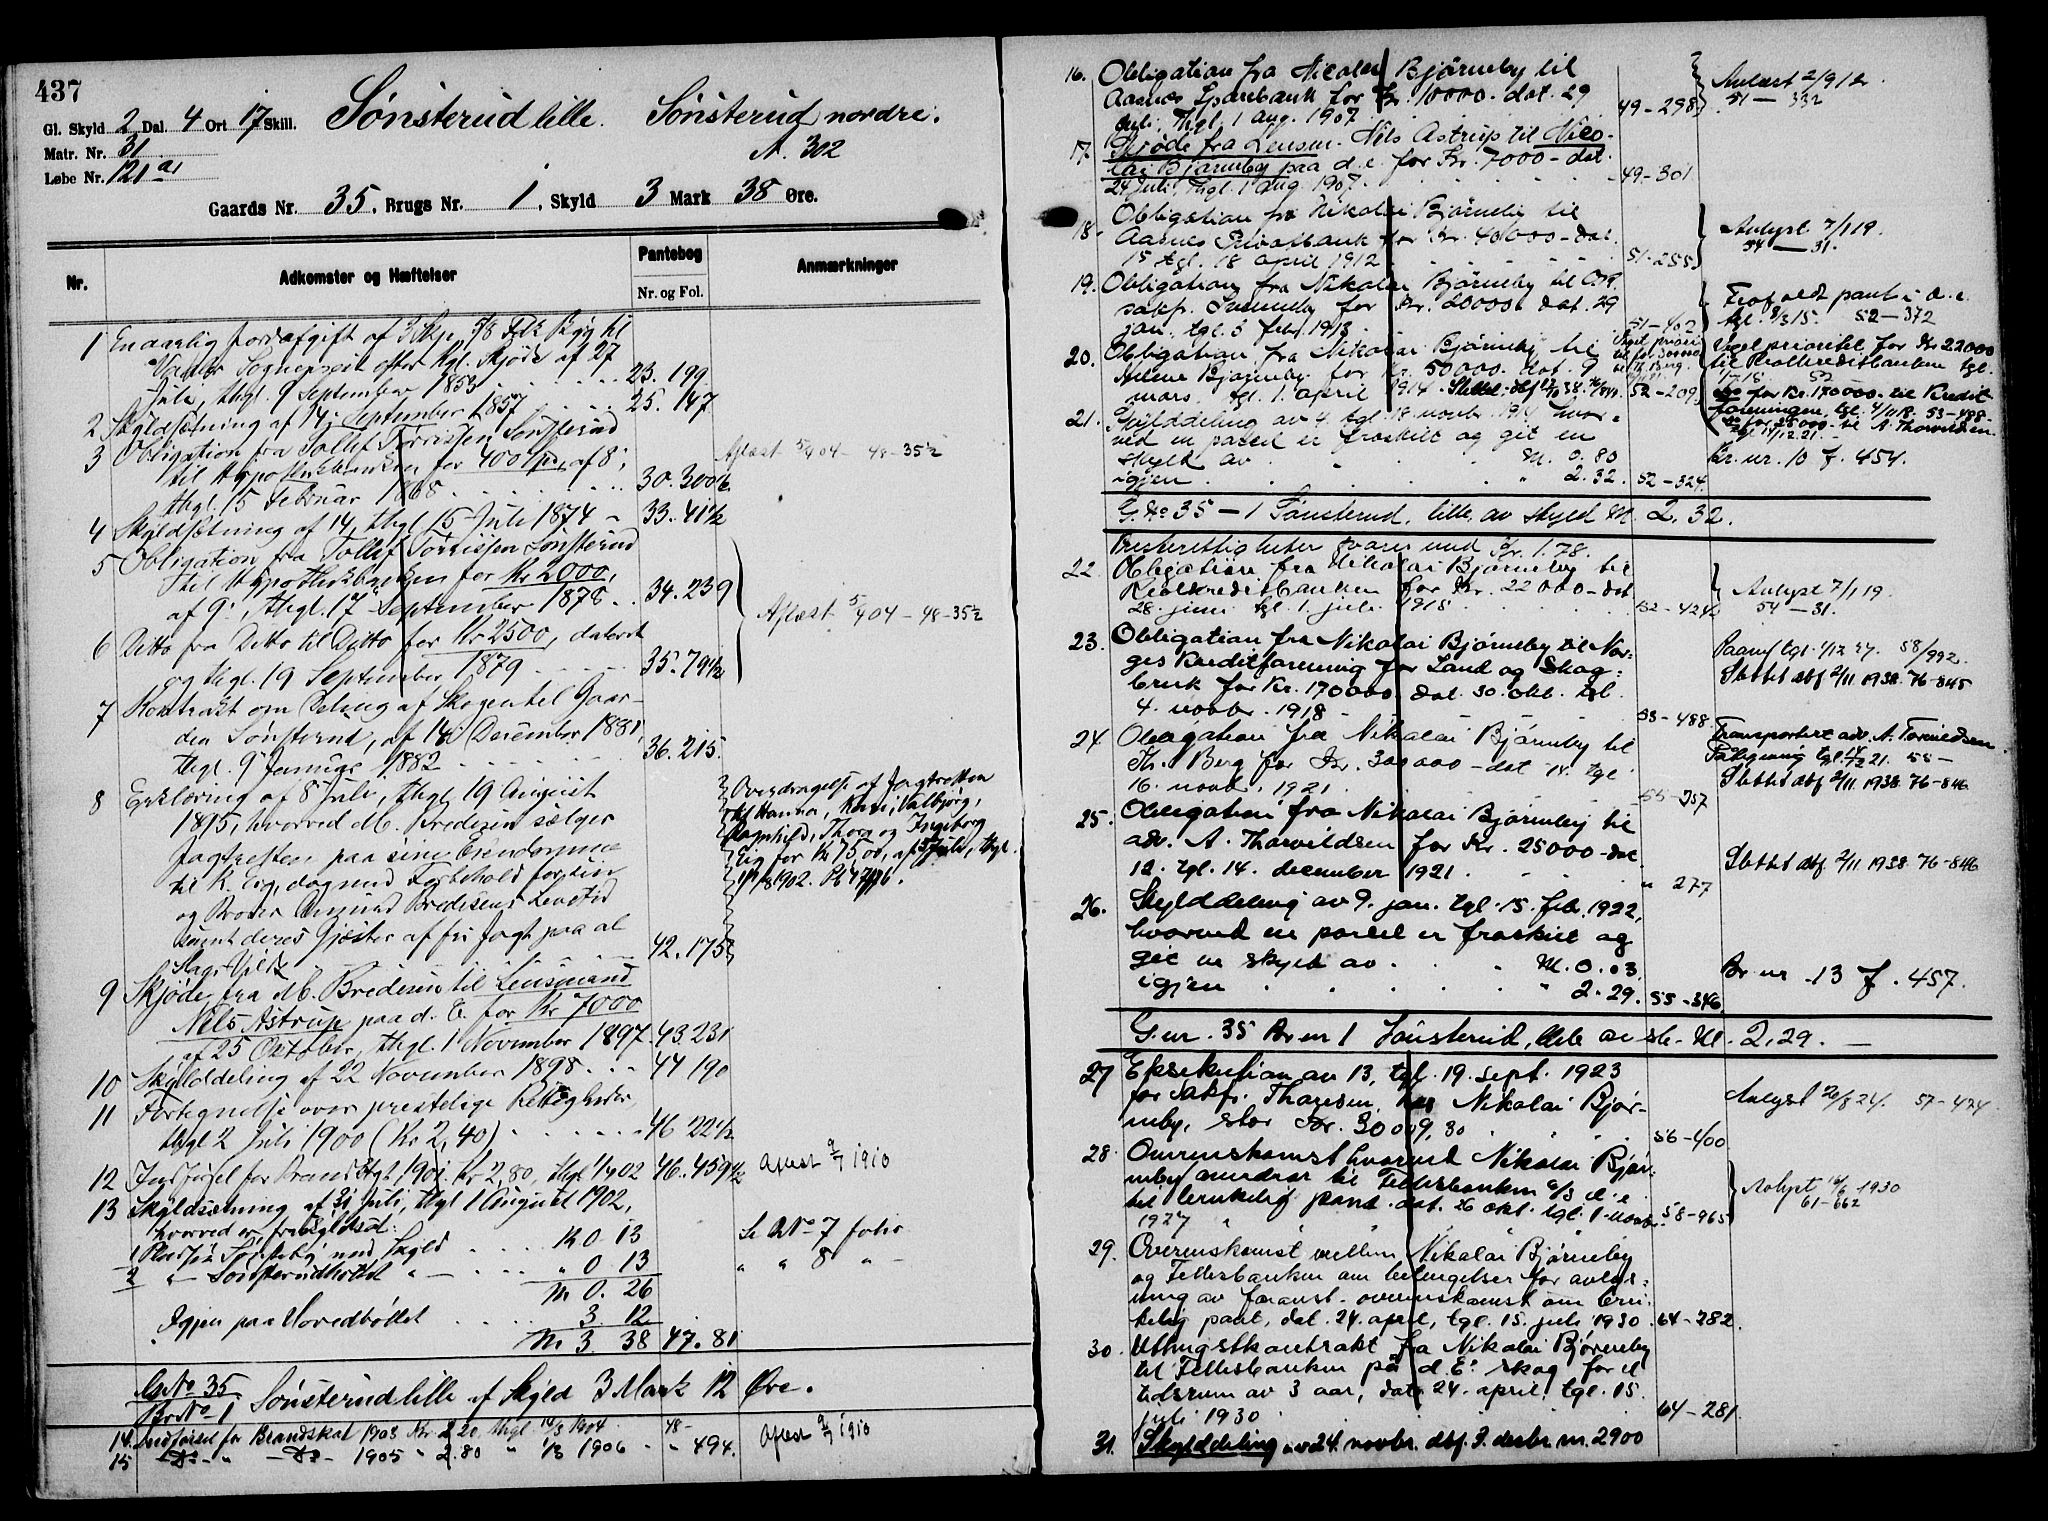 437
Gl. Skyld 2 Dal. 4 Ort 17 Skill. Sønsterud lille. Sønsterud nordre.
Matr. Nr. 31 N. 302
Løbe Nr. 121 a1
Gaards Nr. 35, Brugs Nr. 1, Skyld 3 Mark 38 Øre.
Nr. Adkomster og Hæftelser Pantebog Anmærkninger
Nr. og Fol.
1 En aarlig Jordafgift af 3 Skp. 5/8 Fdk Byg til
Sognepræst efter Kgl. Skjøde af 27
Juli, thgl. 9 September 1853 23. 199
2 Skyldsætning af 14 September 1857 25. 147
3 Obligation fra Tollef Torrissen Sønsterud
til Hypothekbanken for 400 Spd, af 8,
thgl. 15 Februar 1868 30. 300b Aflæst 5/9 04 - 48 - 35½
4 Skyldsætning af 14, thgl. 15 Juli 1874 33. 41½
5 Obligation fra Tollef Torrissen Sønsterud
til Hypothekbanken for Kr 2000,
af 9, thgl. 17 September 1878 34. 239
Aflæst 5/9 04 - 48 - 35½
6 Ditto fra Ditto til Ditto for Kr 2500, dateret
og thgl. 19 September 1879 35. 79½
7 Kontrakt om Deling af Skogen til Gaar-
den Sønsterud, af 14 December 1881,
thgl. 9 Januar 1882 36. 215
8 Erklæring af 8 Juli, thgl 19 August
1895, hvorved M. Bredesen sælger
Jagtretten paa sine Eiendomme
til R. Eig, dog med Forbehold for sin
og Broder Amund Bredesens Levetid
samt deres Gjæster af fri Jagt paa al
Slags Vildt 42. 175
Overdragelse af Jagtretten
Hanna, Karen, Valborg,
Ragnhild, Thora og Ingeborg
Eig for Kr 7500, af Juli, thgl.
1/8 1902. Pb 47
9 Skjøde fra M. Bredesen til Lensmand
Nils Astrup paa d. E. for Kr 7000
af 25 Oktober, thgl. 1 November 1897 43. 231
10 Skylddeling af 22 November 1898 44 190
11 Fortegnelse over prestelige Rettigheder
thgl 2 Juli 1900 (Kr 2,40) 46 22½
12 Indførsel for Brandskat 1901. Kr 2,80, thgl 1/4 02 46. 459½ Aflæst 9/7 1910
13 Skyldsætning af 31 Juli, thgl 1 August 1902,
hvorved er fraskyldsat:
1 Plads Sønsteby med Skyld M 0. 13 Se BrNo 7 folio
2 " - Sønsterudholtet " - " 0. 13 " " 8 " -
M 0. 26
Igjen paa Hovedbøllet 3. 12
M 3. 38 47. 81
GNo 35
BrNo 1 Sønsterud lille af Skyld 3 Mark 12 Øre.
14. Indførsel for Brandskat 1903 Kr 2.20 thgl 14/3 1904 48-
Aflæst 9/7 1910
15 - Do - " - Do - 1905 " 2.80 " 1/3 1906 " " 494.
16. Obligation fra Nicolai Bjørneby til
Aasnes Sparebank for Kr. 10000. dat. 29
Juli, Thgl. 1 aug. 1907 49-298 Avlæst 2/9 12.
51 - 332
17. Skjøde fra Lensm. Nils Astrup til Nico-
lai Bjørneby paa d.e. for Kr. 7000 - dat.
24 Juli, Thgl. 1 aug. 1907. 49-301
18. Obligation fra Nikolai Bjørneby til
Aasnes Privatbank for Kr. 40000 - dat.
15 tgl. 18 april 1912 51-255 Avlyst 7/1 19.
54 - 31.
19. Obligation fra Nikolai Bjørneby til O.R.
sakf. for Kr. 20000 dat. 29
jan. tgl. 5 febr. 1913. 51-402
Frafaldt pant i d.e.
tgl. 8/3 15. 52-372
20. Obligation fra Nikolai Bjørneby til
Bjørneby for Kr. 50000. dat. 9
mars. tgl. 1. april 1914. Slettet dbf 52-209
Veget prioritet for Kr 22000
til Realkreditbanken tgl.
1/7 15 52
do for Kr. 170000 til Kredit
foreningen, tgl. 4/11 18. 53-488.
do for 25000 til A. Thorvildsen
tgl 14/12 21.
21. Skylddeling av 4. tgl. 18. novbr. 1914 hvor-
ved en parsel er fraskilt og git en
skyld av M. 0.80 Br. nr. 10 f. 454.
igjen " 2.32. 52-324.
G. No 35 - 1 Sønsterud, lille, av skyld M. 2.32.
Presterettigheter svares med Kr. 1.78.
22. Obligation fra Nikolai Bjørneby til
Realkreditbanken for Kr. 22000 - dat.
28. juni tgl. 1. juli 1915 52-424 Avlyst 7/1 19.
54 - 31.
23. Obligation fra Nikolai Bjørneby til Nor-
ges Kreditforening for Land og Skog-
bruk for Kr. 170000 dat. 30. okt. tgl
4. novbr. 1918 53-488
tgl. 1/12 27. 58/992.
Slettet dbf 2/11 1938. 76-845
24 Obligation fra Nikolai Bjørneby til
Th. Berg for Kr. 300000 - dat 14. tgl
16. novb. 1921. 55-257
Transportert adv. A. Torvildsen
tgl. 21. 55-
Slettet dbf 2/11. 1938. 76-846
25. Obligation fra Nikolai Bjørneby til
adv. A. Thorvildsen for Kr. 25000 - dat
12. tgl. 14. december 1921 " 277 Slettet dbf 2/11 1938. 76-846
26. Skylddeling av 9. jan. tgl. 15. feb. 1922,
hvorved en parsel er fraskilt og
git en skyld av M. 0.03
igjen " 2.29. 55-346 Br nr 13 f. 457.
G. nr. 35 Br nr 1 Sønsterud, lille av sk. M. 2,29.
27 Eksekution av 13, tgl. 19. sept. 1923
for sakf. Thoresen, hos Nikolai Bjør-
neby, stor Kr. 30009,30 56-400 Avlyst 20/8 24. 57-474
28. Overenskomst hvorved Nikolai Bjør-
neby til Fellesbanken a/s d. e
til brukelig pant. dat. 26 okt. tgl. 1. novbr
1927 58-965 Avlyst 1930
61-662
29. Overenskomst mellem Nikolai Bjørneby
og Fellesbanken om betingelser for avløs-
ning av foranst. overenskomst om bru-
kelig pant, dat. 24. april, tgl. 15. juli 1930. 64-282.
30. Utdrugstkontrakt fra Nikolai Bjørneby
til Fellesbanken på d. E.s skog for et
tidsrum av 3 aar, dat. 24. april, tgl. 15.
juli 1930 64-281.
31. Skylddeling av 24. novbr. dbf. 3. desbr nr. 2900